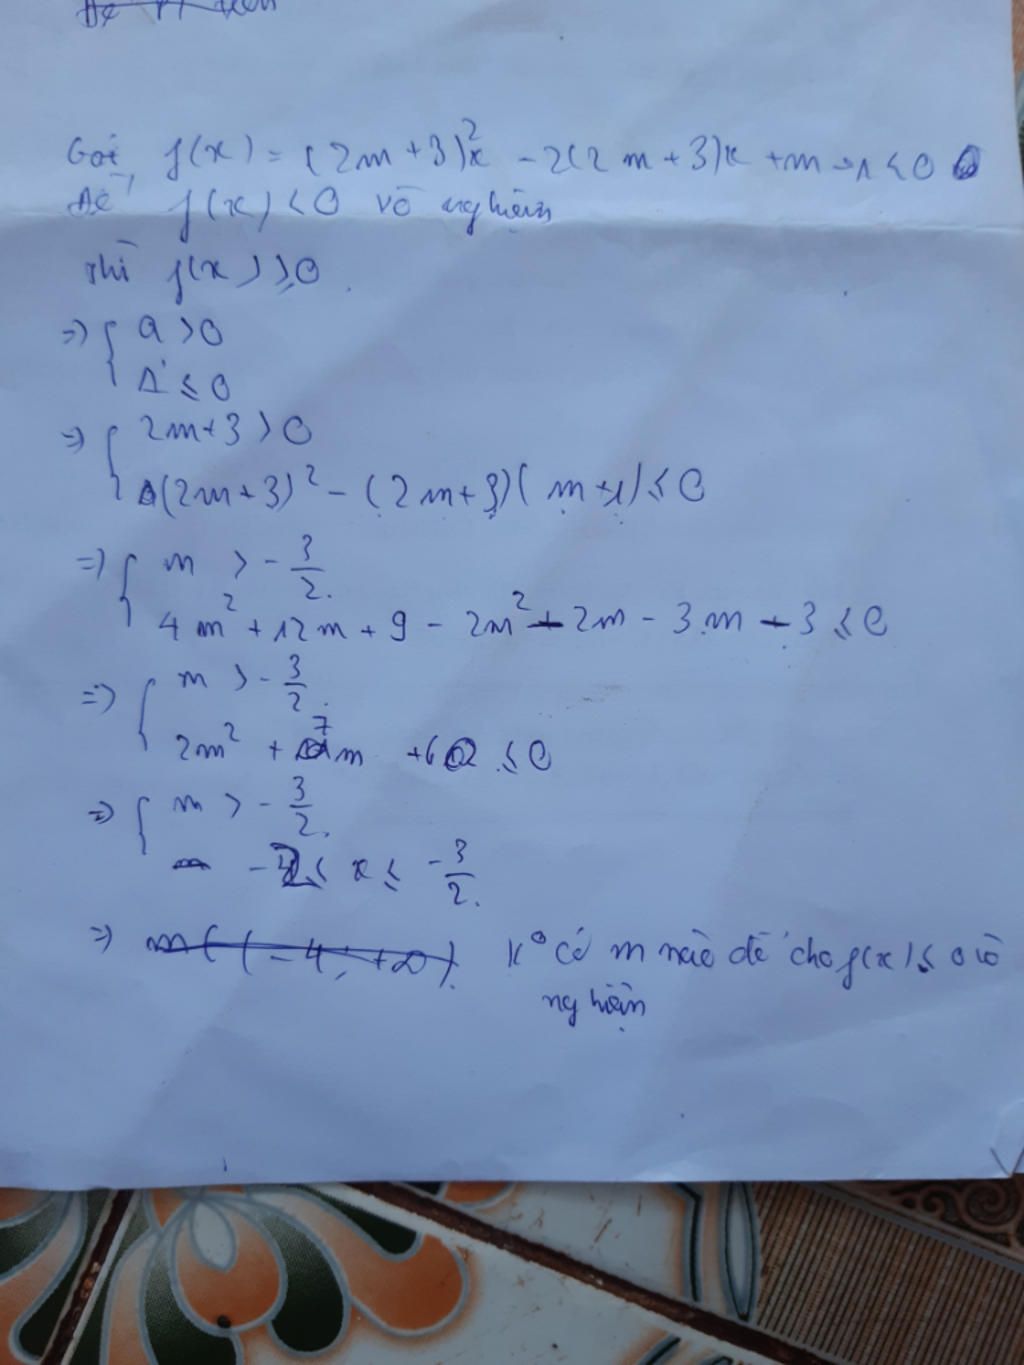 Gọi f(x) = (2m+3)x² - 2(2m+3)x + m + 1 < 0
Để f(x) < 0 vô nghiệm
thì f(x) ≥ 0
=> { a > 0
Δ' ≤ 0
=> { 2m+3 > 0
(2m+3)² - (2m+3)(m+1) ≤ 0
=> { m > -3/2.
4m² + 12m + 9 - 2m² - 2m - 3.m - 3 ≤ 0
=> { m > -3/2.
2m² + 7m + 6 ≤ 0
=> { m > -3/2.
-2 ≤ x ≤ -3/2.
=> m ( (-4; +∞). K° có m nào để cho f(x) ≤ 0 vô
nghiệm